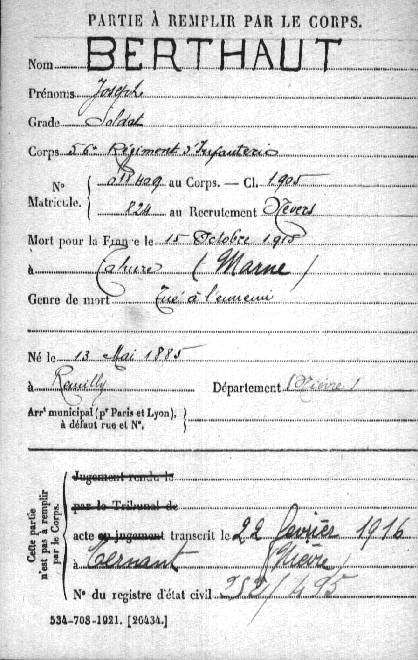 PARTIE À REMPLIR PAR LE CORPS.
Nom BERTHAUT
Prénoms Joseph
Grade Soldat
Corps 56e Régiment d'Infanterie
Nos Matricule. 409 au Corps. — Cl. 1905
824 au Recrutement Nevers
Mort pour la France le 15 Octobre 1915
à Tahure (Marne)
Genre de mort Tué à l'ennemi
Né le 13 Mai 1885
à Remilly Département (Nièvre)
Arrt municipal (pr Paris et Lyon), à défaut rue et No.
Cette partie n'est pas à remplir par le Corps.
Jugement rendu le
par le Tribunal de
acte ou jugement transcrit le 22 février 1916
à Ternant (Nièvre)
No du registre d'état civil 282/495
534-708-1921. [26434.]